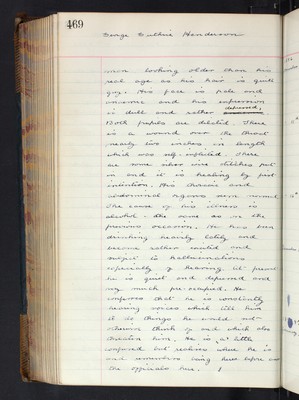 469
George Guthrie Henderson
man looking older than his
real age as his hair is quite
grey. His face is pale and
anaemic and his expression
is dull and rather depressed,
Both pupils are dilated. There
is a wound over the throat
nearly two inches in length
which was self-inflicted. There
are some silver wire stitches put
in and it is healing by first
intention. His thoracic and
abdominal organs seem normal
The cause of his illness is
alcohol - the same as on the
previous occasion. He has been
drinking heavily lately and
became rather excited and
subject to hallucinations
especially of hearing. At present
he is quiet and depressed and
very much pre-occupied. He
confesses that he is constantly
hearing voices which tell him
to do things he would not
otherwise think of and which also
threaten him. He is a little
confused but realises where he is
and remembers being here before and
the officials here.